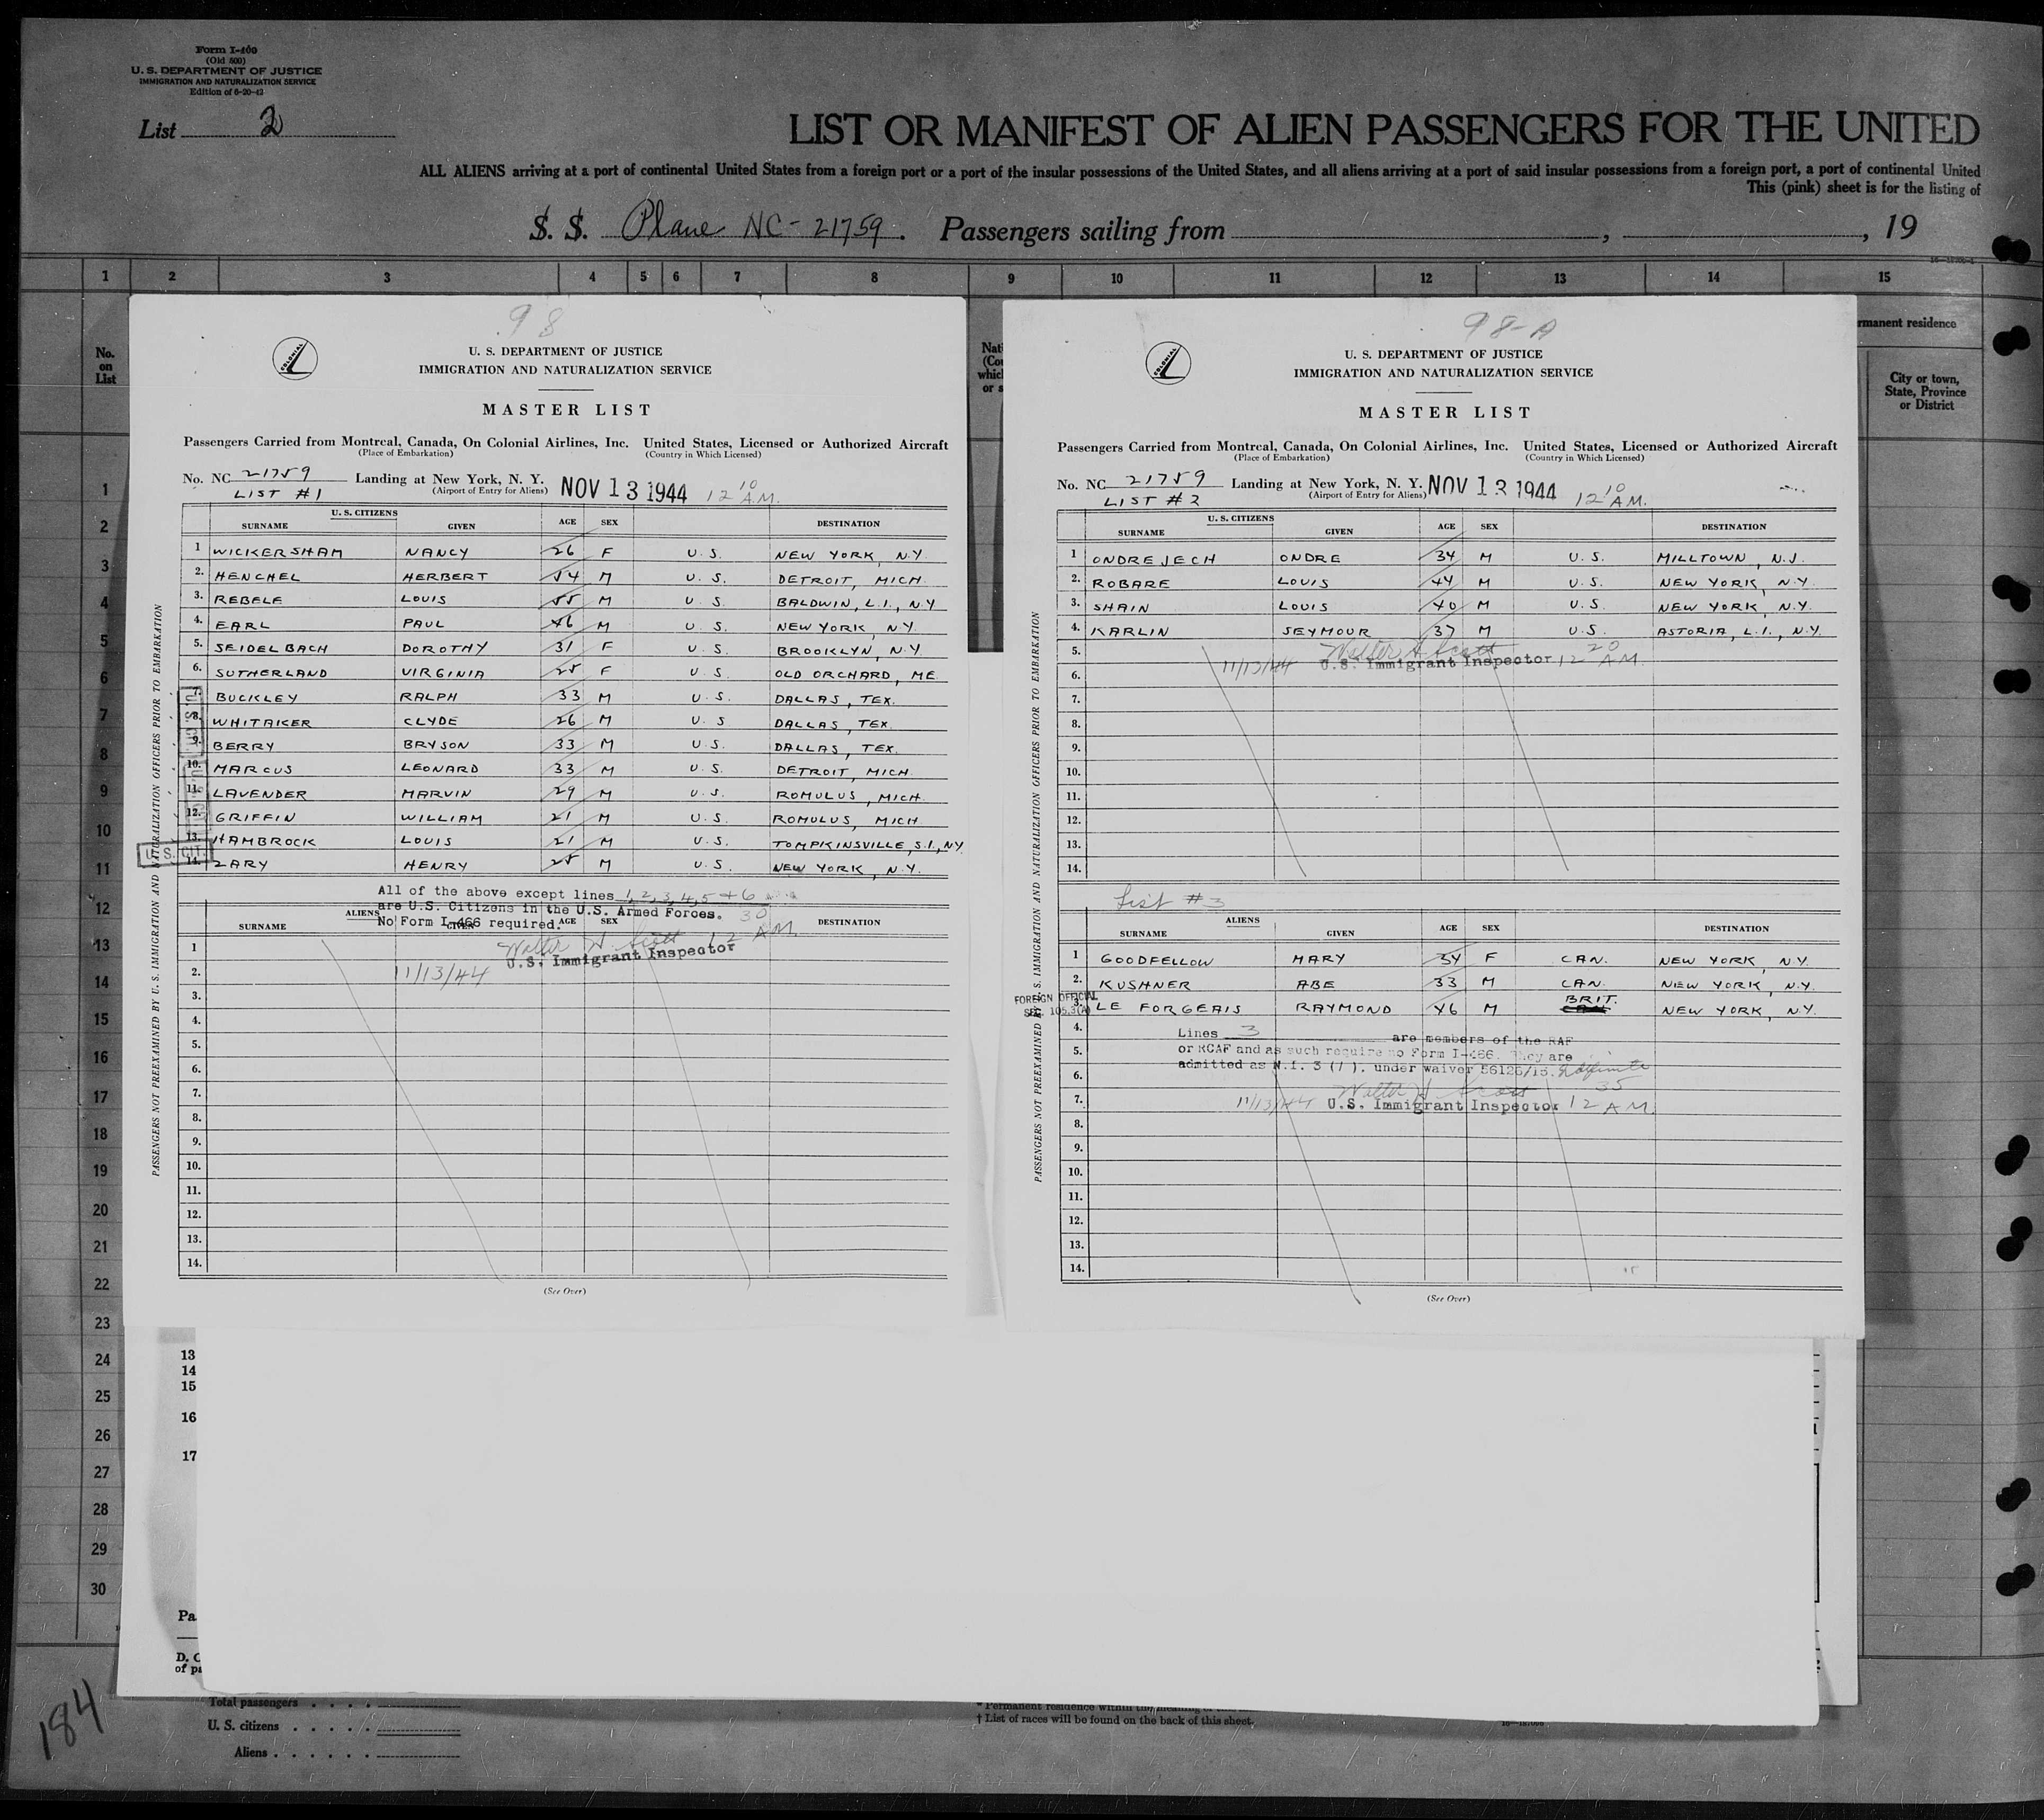 Form I-400
(Old 500)
U. S. DEPARTMENT OF JUSTICE
IMMIGRATION AND NATURALIZATION SERVICE
Edition of 6-20-43
List 2
LIST OR MANIFEST OF ALIEN PASSENGERS FOR THE UNITED
ALL ALIENS arriving at a port of continental United States from a foreign port or a port of the insular possessions of the United States, and all aliens arriving at a port of said insular possessions from a foreign port, a port of continental United
This (pink) sheet is for the listing of
S. S. Plane NC-21759. Passengers sailing from , , 19
1 2 3 4 5 6 7 8 9 10 11 12 13 14 15
No. on List
rmanent residence
City or town, State, Province or District
98
COLONIAL
U. S. DEPARTMENT OF JUSTICE
IMMIGRATION AND NATURALIZATION SERVICE
MASTER LIST
Passengers Carried from Montreal, Canada, On Colonial Airlines, Inc. United States, Licensed or Authorized Aircraft
(Place of Embarkation) (Country in Which Licensed)
No. NC 21759 Landing at New York, N. Y. NOV 13 1944 12 10 A.M.
LIST #1 (Airport of Entry for Aliens)
U. S. CITIZENS
SURNAME GIVEN AGE SEX DESTINATION
1 WICKERSHAM NANCY 26 F U.S. NEW YORK, N.Y.
2. HENCHEL HERBERT 54 M U.S. DETROIT, MICH.
3. REBELE LOUIS 55 M U.S. BALDWIN, L.I., N.Y
4. EARL PAUL 46 M U.S. NEW YORK, N.Y.
5. SEIDELBACH DOROTHY 31 F U.S. BROOKLYN, N.Y
6. SUTHERLAND VIRGINIA 25 F U.S. OLD ORCHARD, ME
7. BUCKLEY RALPH 33 M U.S. DALLAS, TEX.
8. WHITAKER CLYDE 26 M U.S DALLAS, TEX.
9. BERRY BRYSON 33 M U.S. DALLAS, TEX.
10. MARCUS LEONARD 33 M U.S. DETROIT, MICH.
11. LAVENDER MARVIN 29 M U.S. ROMULUS, MICH.
12. GRIFFIN WILLIAM 21 M U.S. ROMULUS, MICH.
13. HAMBROCK LOUIS 21 M U.S. TOMPKINSVILLE, S.I., N.Y.
14. ZARY HENRY 25 M U.S. NEW YORK, N.Y.
U. S. CIT.
All of the above except lines 1, 2, 3, 4, 5 + 6
are U.S. Citizens in the U.S. Armed Forces.
No Form I-466 required.
12 30 A.M.
ALIENS
SURNAME GIVEN AGE SEX DESTINATION
Walter H Scott
U.S. Immigrant Inspector
11/13/44
1
2.
3.
4.
5.
6.
7.
8.
9.
10.
11.
12.
13.
14.
(See Over)
PASSENGERS NOT PREEXAMINED BY U. S. IMMIGRATION AND NATURALIZATION OFFICERS PRIOR TO EMBARKATION
98-A
COLONIAL
U. S. DEPARTMENT OF JUSTICE
IMMIGRATION AND NATURALIZATION SERVICE
MASTER LIST
Passengers Carried from Montreal, Canada, On Colonial Airlines, Inc. United States, Licensed or Authorized Aircraft
(Place of Embarkation) (Country in Which Licensed)
No. NC 21759 Landing at New York, N. Y. NOV 13 1944 12 10 A.M.
LIST #2 (Airport of Entry for Aliens)
U. S. CITIZENS
SURNAME GIVEN AGE SEX DESTINATION
1 ONDREJECH ONDRE 34 M U.S. MILLTOWN, N.J.
2. ROBARE LOUIS 44 M U.S. NEW YORK, N.Y.
3. SHAIN LOUIS 40 M U.S. NEW YORK, N.Y.
4. KARLIN SEYMOUR 37 M U.S. ASTORIA, L.I., N.Y.
5. Walter H Scott
11/13/44 U.S. Immigrant Inspector 12 20 A.M.
6.
7.
8.
9.
10.
11.
12.
13.
14.
List #3
ALIENS
SURNAME GIVEN AGE SEX DESTINATION
1 GOODFELLOW MARY 54 F CAN. NEW YORK, N.Y.
2. KUSHNER ABE 33 M CAN. NEW YORK, N.Y.
FOREIGN OFFICIAL
SEC. 105.3(A)
3. LE FORGEAIS RAYMOND 46 M BRIT. NEW YORK, N.Y.
4. Lines 3 are members of the RAF
5. or RCAF and as such require no Form I-466. They are
6. admitted as N.I. 3 (1). under waiver 56126/15. Indefinite
Walter H Scott
7. 11/13/44 U.S. Immigrant Inspector 12 35 A.M.
8.
9.
10.
11.
12.
13.
14.
(See Over)
PASSENGERS NOT PREEXAMINED BY U. S. IMMIGRATION AND NATURALIZATION OFFICERS PRIOR TO EMBARKATION
1
2
3
4
5
6
7
8
9
10
11
12
13
14
15
16
17
18
19
20
21
22
23
24
25
26
27
28
29
30
13
14
15
16
17
Pa
D. C
of pa
184
Total passengers
U. S. citizens
Aliens
* Permanent residence within the meaning of
† List of races will be found on the back of this sheet.